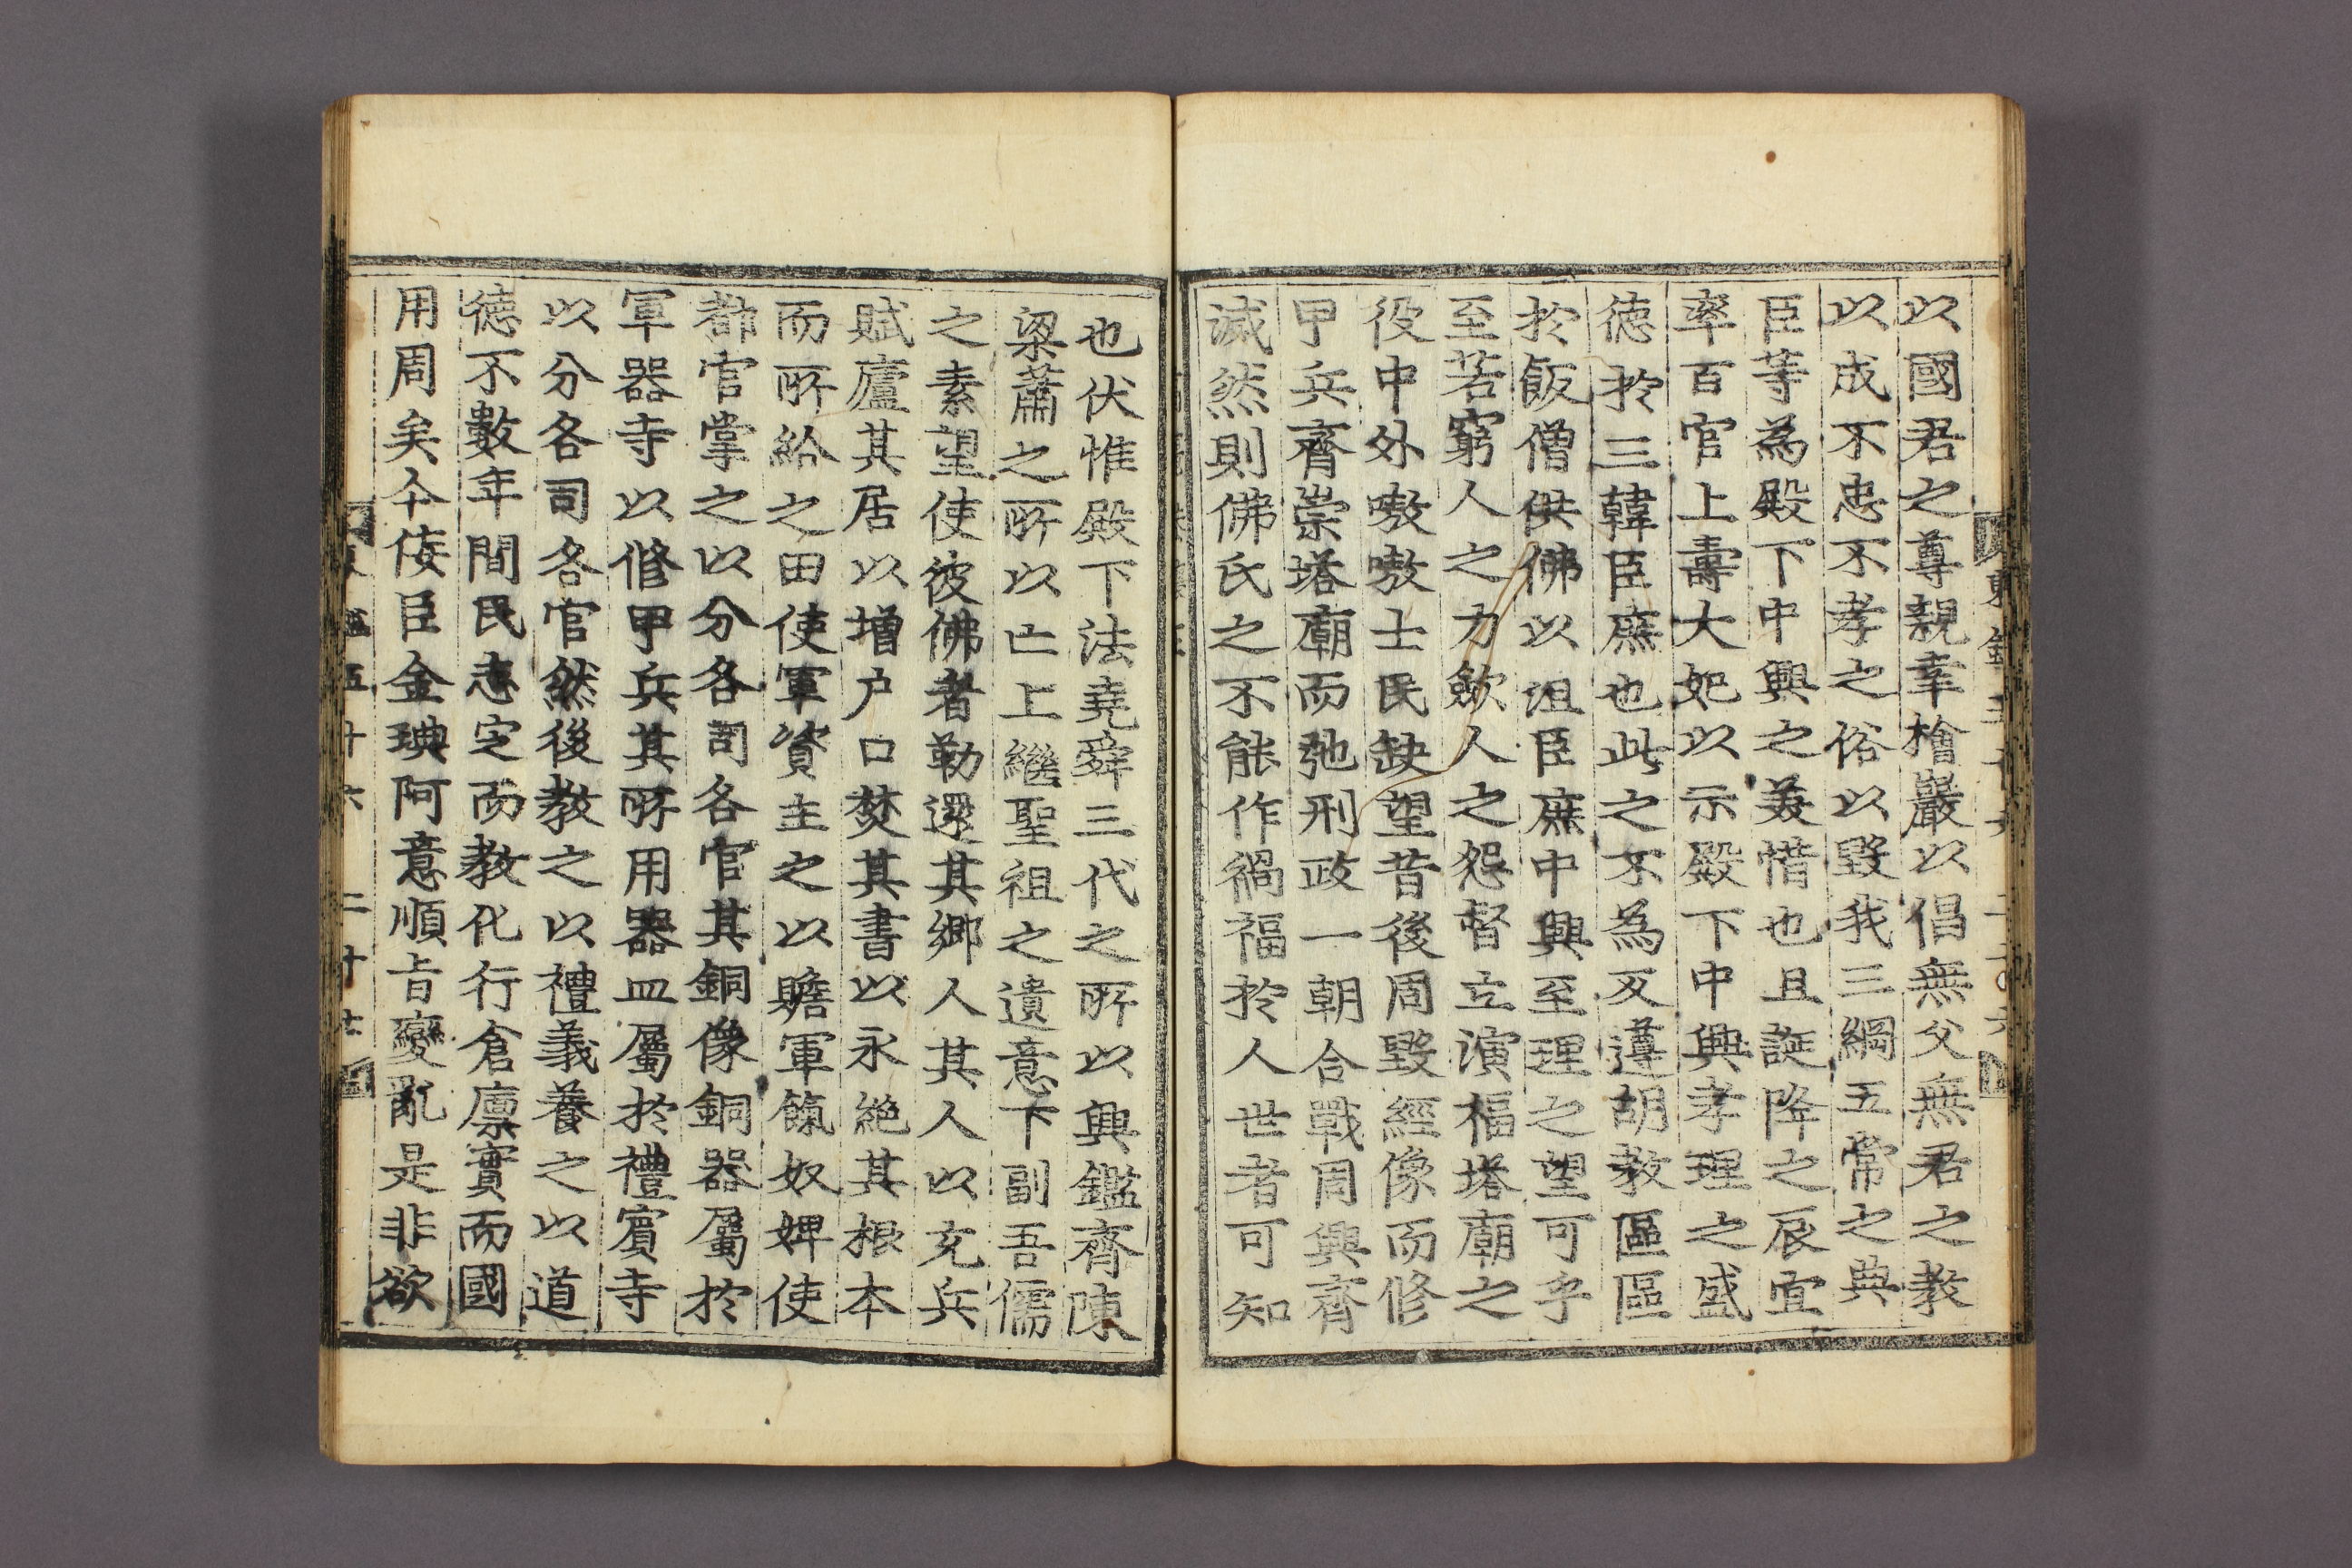 以國君之尊親幸檜巖以倡無父無君之教
以成不忠不孝之俗以毀我三綱五常之典
臣等為殿下中興之美惜也且誕降之辰宜
率百官上壽大妃以示殿下中興孝理之盛
德於三韓臣庶也此之不為反遵胡教區區
於飯僧供佛以沮臣庶中興至理之望可乎
至若窮人之力斂人之怨督立演福塔廟之
役中外嗷嗷士民缺望昔後周毀經像而修
甲兵齊崇塔廟而弛刑政一朝合戰周興齊
滅然則佛氏之不能作禍福於人世者可知
也伏惟殿下法堯舜三代之所以興鑑齊陳
梁蕭之所以亡上繼聖祖之遺意下副吾儒
之素望使彼佛者勒還其鄉人其人以充兵
賦廬其居以增戶口焚其書以永絕其根本
而所給之田使軍資主之以贍軍餼奴婢使
都官掌之以分各司各官其銅像銅器屬於
軍器寺以修甲兵其所用器皿屬於禮賓寺
以分各司各官然後教之以禮義養之以道
德不數年間民志定而教化行倉廩實而國
用周矣今侫臣金琠阿意順旨變亂是非欲
東鑑五十六 二十七